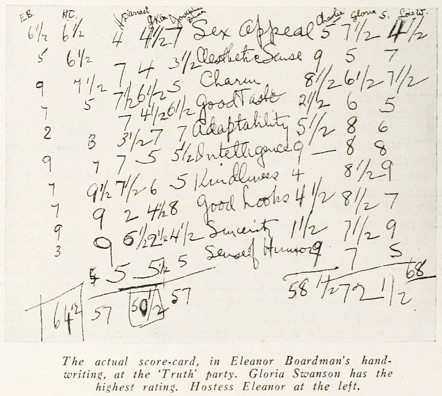 E.B. H.C. Charlie Gloria S.
6½ 6½ 4 4½ 7 Sex Appeal 5 7½ 4½
5 6½ 7 4 3½ Aesthetic Sense 9 5 7
9 7½ 7½ 6½ 5 Charm 8½ 6½ 7½
7 5 7 4½ 6½ Good Taste 2½ 6 5
2 3 3½ 7 7 Adaptability 5½ 8 6
9 7 7 5 5½ Intelligence 9 – 8 8
7 9½ 7½ 6 5 Kindliness 4 8½ 9
7 9 2 4½ 8 Good Looks 4½ 8½ 7
9 9 6½ 2½ 4½ Sincerity 1½ 7½ 9
3 5 5½ 5 Sense of Humor 9 7 5
64½ 57 50½ 57 58½ 72 1/2 68
The actual score-card, in Eleanor Boardman's hand-
writing, at the 'Truth' party. Gloria Swanson has the
highest rating. Hostess Eleanor at the left.